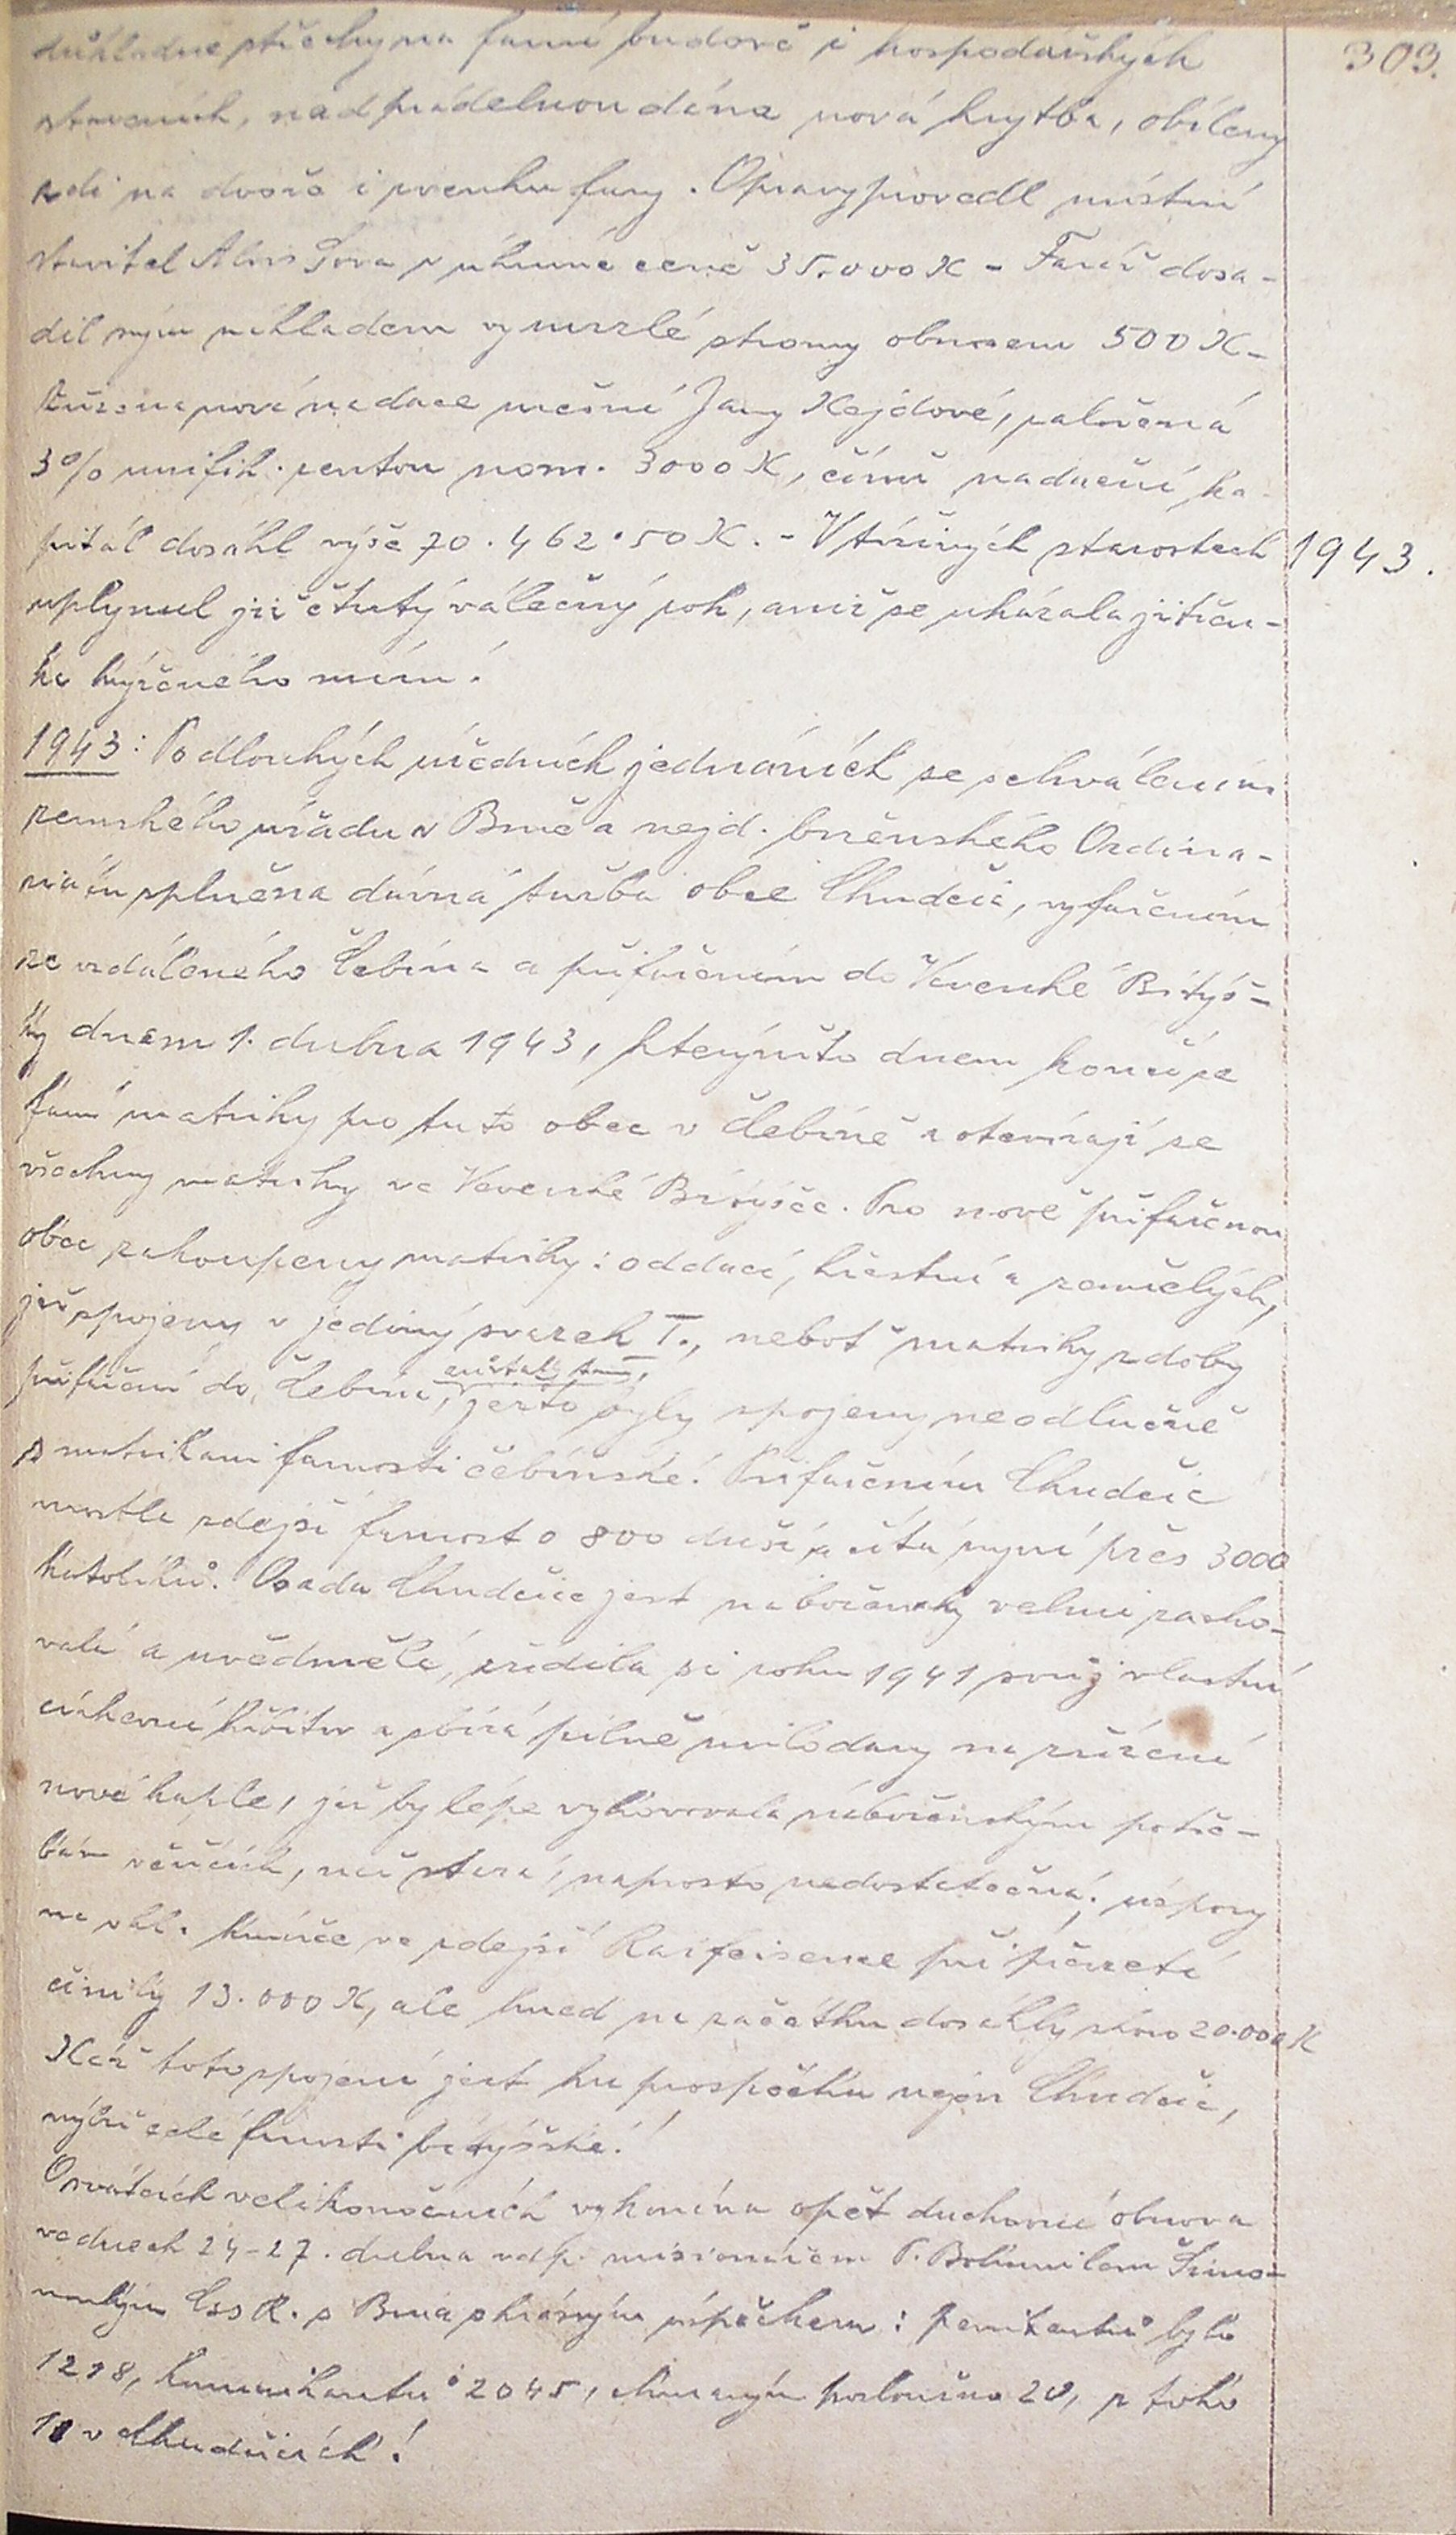 303.
důkladně střechy na farní budově i hospodářských
staveních, nad prádelnou dána nová krytba, obíleny
zdi na dvoře i zvenku fary. Opravy provedl místní
stavitel Alois Sova v úhrnné ceně 35.000 K - Farář dosa-
dil svým nákladem vymrzlé stromy obnosem 500 K -
Zřízena nová nadace mešní Jany Kejdové, založená
3% unifik. rentou nom. 3000 K, čímž nadační ka-
pitál dosáhl výše 70.462.50 K. - V tíživých starostech
1943.
uplynul již čtvrtý válečný rok, aniž se ukázala jitřen-
ka kýženého míru!
1943: Po dlouhých úředních jednáních se schválením
zemského úřadu v Brně a nejd. brněnského Ordina-
riátu splněna dávná tužba obce Chudčic, vyfařením
ze vzdáleného Čebína a přifařením do Veverské Bitýš-
ky dnem 1. dubna 1943, kterýmžto dnem končí se
farní matriky pro tuto obec v Čebíně a otevírají se
všechny matriky ve Veverské Bitýšce. Pro nově přifařenou
obec zakoupeny matriky: oddací, křestní a zemřelých,
jež spojeny v jediný svazek I., neboť matriky z doby
přifaření do Čebína, zůstaly tam, ježto byly spojeny neodlučně
s matrikami farnosti čebínské! Přifařením Chudčic
vzrostla zdejší farnost o 800 duší a čítá nyní přes 3000
katolíků. Osada Chudčice jest nábožensky velmi zacho-
valá a uvědomělá, zřídila si roku 1941 svůj vlastní
církevní hřbitov a sbírá pilně milodary na zřízení
nové kaple, jež by lépe vyhovovala náboženským potře-
bám věřících, než stará, naprosto nedostatečná; úspory
na vkl. knížce ve zdejší Raifeisence při převzetí
činily 13.000 K, ale hned na začátku dosáhly skoro 20.000 K
Kéž toto spojení jest ku prospěchu nejen Chudčic,
nýbrž celé farnosti bitýšské!
O svátcích velikonočních vykonána opět duchovní obnova
ve dnech 24-27. dubna vdp. misionářem P. Bohumilem Šimo-
novským CssR. z Brna s krásným úspěchem: penitentů bylo
1218, komunikantů 2045, chorým poslouženo 20, z toho
10 v Chudčicích!